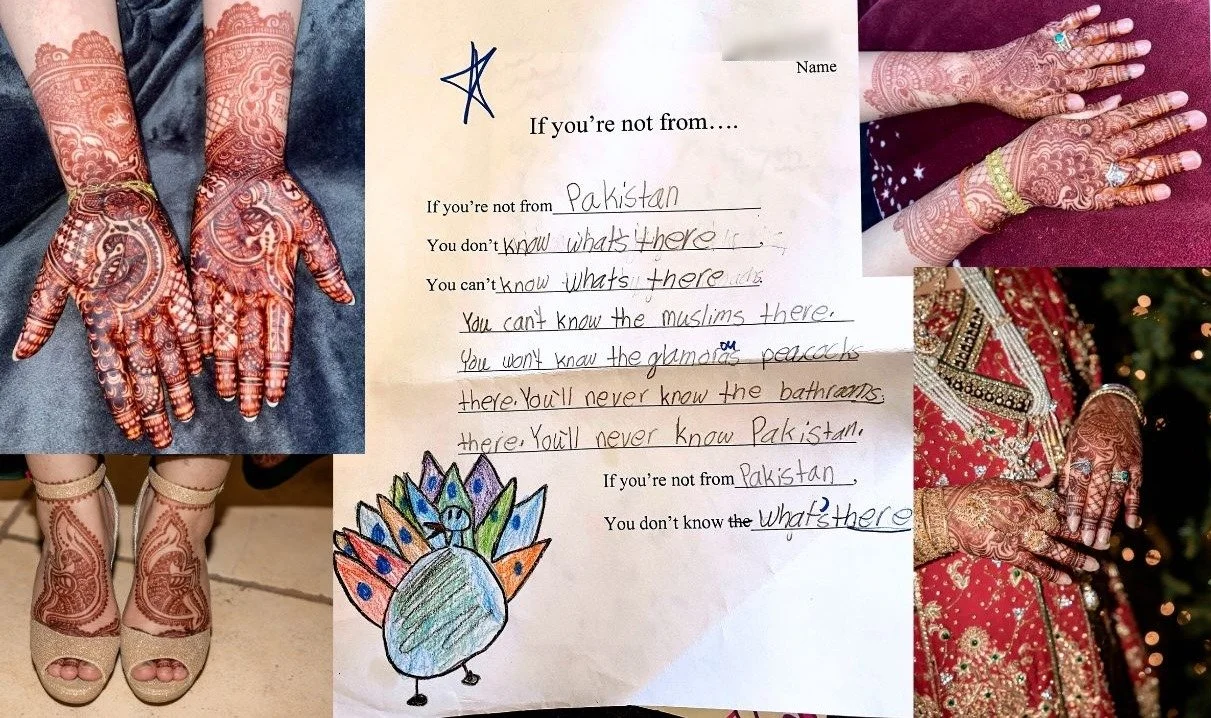 Name
If you're not from....
If you're not from Pakistan
You don't know whats there.
You can't know whats there
You can't know the muslims there.
You won't know the glamorous peacocks
there. You'll never know the bathrooms
there. You'll never know Pakistan.
If you're not from Pakistan,
You don't know the what's there